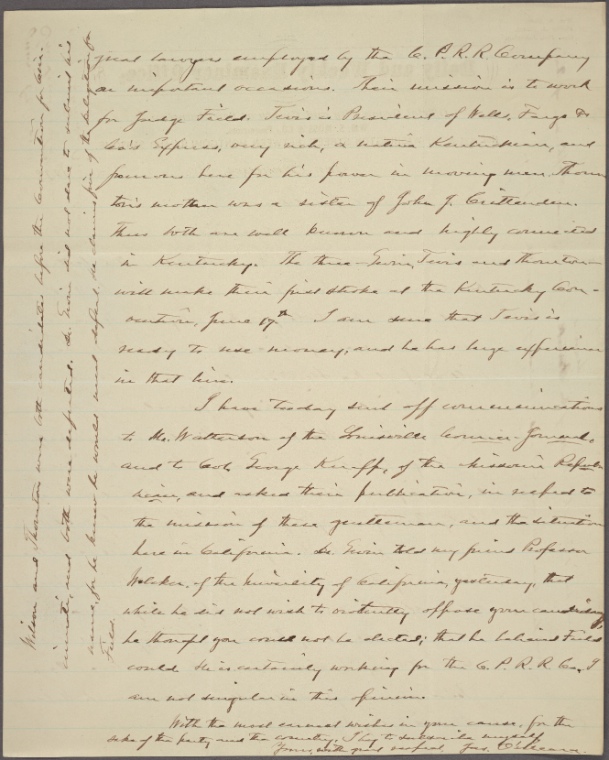 great lawyers employed by the C. P. R. R. Company
on important occasions. Their mission is to work
for Judge Field. Tevis is President of Wells, Fargo &
Co's Express, very rich, a native Kentuckian, and
famous here for his power in moving men. Thorn-
ton's mother was a sister of John J. Crittenden.
Thus both are well known and highly connected
in Kentucky. The three—Gwin, Tevis and Thornton—
will make their first stroke at the Kentucky Con-
vention, June 17th. I am sure that Tevis is
ready to use money, and he has large experience
in that line.
I have today sent off communications
to Mr. Watterson of the Louisville Courier-Journal,
and to Col. George Knapp, of the Missouri Repub-
lican, and asked their publication, in respect to
the mission of these gentlemen, and the situation
here in California. Dr. Gwin told my friend Professor
Welcker, of the University of California, yesterday, that
while he did not wish to violently oppose your candidacy
he thought you could not be elected; that he believed Field
could. He is certainly working for the C. P. R. R. Co. I
am not singular in this opinion.
With the most earnest wishes in your cause, for the
sake of the party and the country, I beg to subscribe myself
Yours, with great respect, Jas. O'Meara.
Wilson and Thornton were both candidates before the Convention for Cin-
cinnati, and both were defeated. Dr. Gwin did not dare to submit his
name, for he knew he would meet defeat. He claims five of the delegation for
Field.